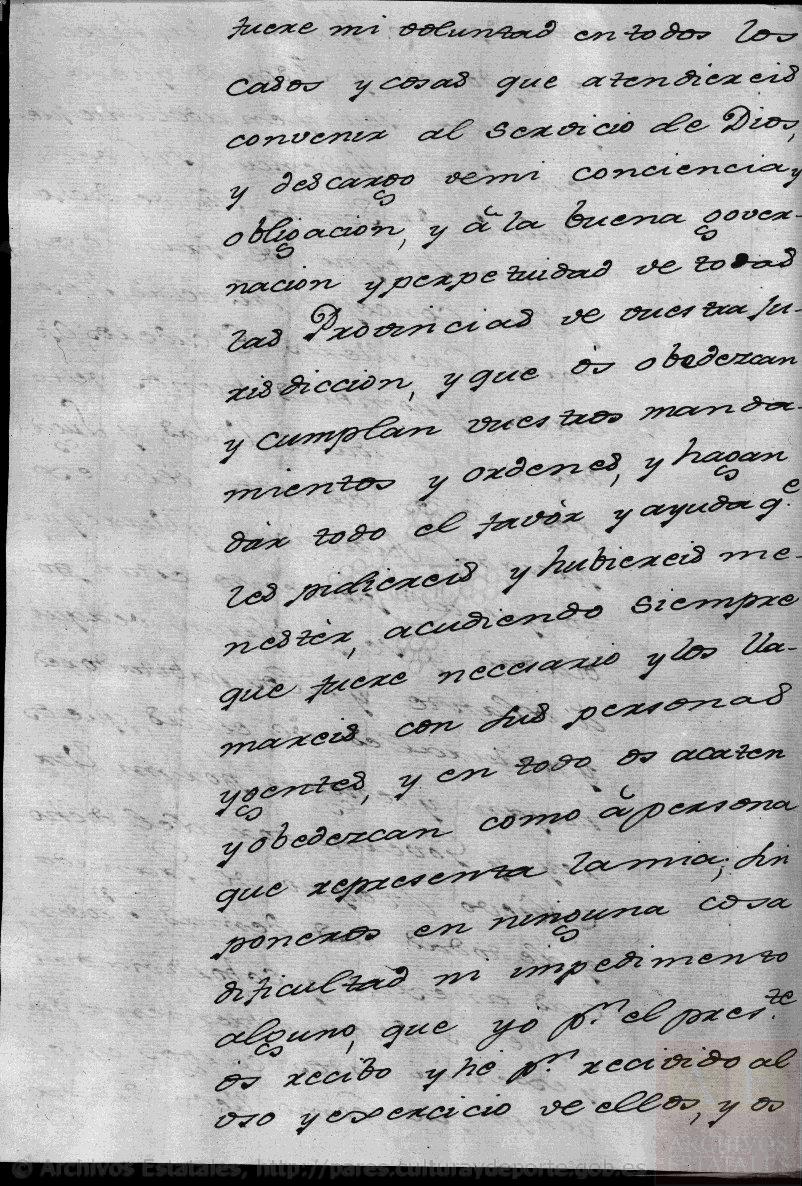 fuere mi voluntad en todos los
casos y cosas que atendiereis
convenir al servicio de Dios,
y descargo de mi conciencia y
obligacion, y à la buena gover-
nacion y perpetuidad de todas
las Provincias de vuestra Ju-
risdiccion, y que os obedezcan
y cumplan vuestros manda-
mientos y ordenes, y hagan
dàr todo el favòr y ayuda q.e
les pidiereis y hubiereis me-
nester, acudiendo siempre
que fuere necesario y los lla-
mareis con sus personas
y gentes, y en todo os acaten
y obedezcan como à persona
que representa la mia; sin
poneros en ninguna cosa
dificultad ni impedimento
alguno, que yo p.r el pres.te
os recibo y he p.r recivido al
uso y exercicio de ellos, y os
© Archivos Estatales, http://pares.culturaydeporte.gob.es
ARCHIVOS
ESTATALES